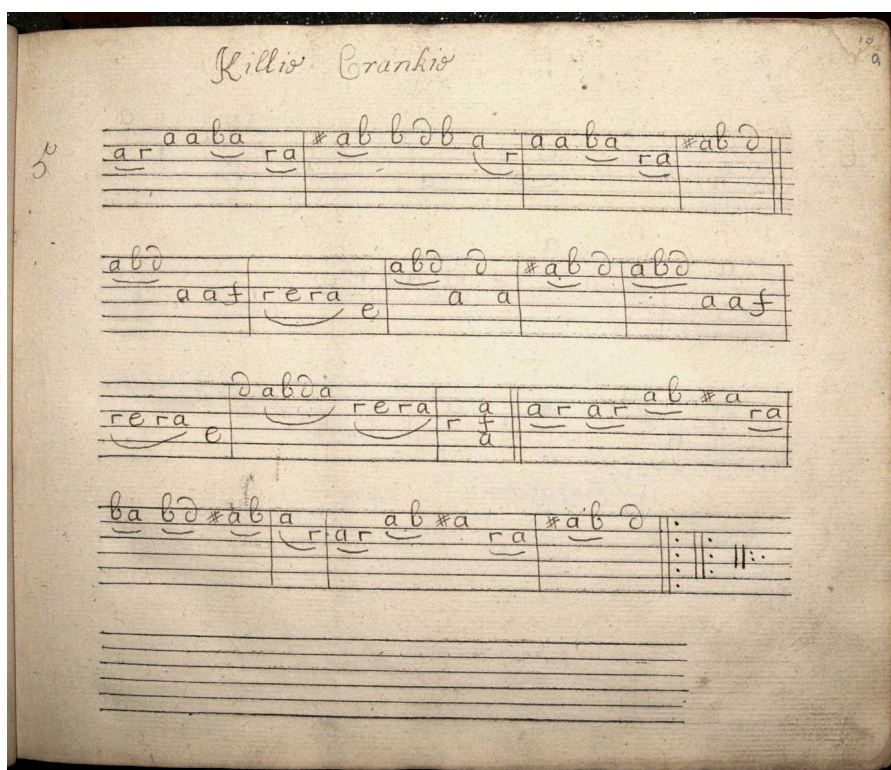 Killie Crankie
10
a
5
a r a a b a r a # a b b d b a r a a b a r a # a b d
a b d a a f r e r a e a b d a d a # a b d a b d a a f
r e r a e d a b d a r e r a r a f a a r a r a b # a r a
b a b d # a b a r a r a b # a r a # a b d